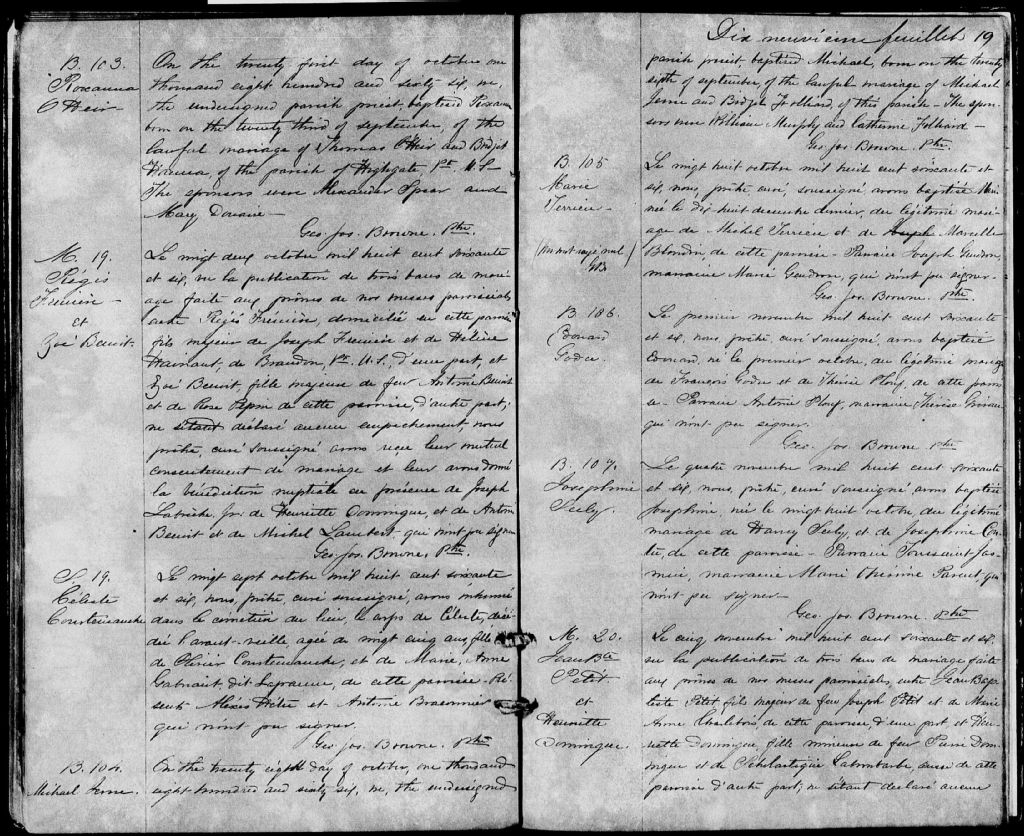 B. 103.
Roxanna
O'Heir
On the twenty first day of october one
thousand eight hundred and sixty six, we,
the undersigned parish priest, baptized Roxanna
born on the twenty third of septembre, of the
lawful mariage of Thomas O'Heir and Bridget
of the parish of Highgate, Vt. U.S-
The sponsors were Alexander Speer and
Mary
Geo. Jos. Browne. Ptre.
M. 19.
Régis
Frenière
et
Zoé Benoit.
Le vingt deux octobre mil huit cent soixante
et six, vu la publication de trois bans de mari-
age faite aux prônes de nos messes paroissiales
entre Régis Frénière, domicilié en cette paroisse
fils majeur de Joseph Frenière et de Hélène
de Brandon, Vt. U.S, d'une part, et
Zoé Benoit, fille majeure de feu Antoine Benoit
et de Rose Pepin de cette paroisse, d'autre part;
ne s'étant déclaré aucun empêchement nous
prêtre, curé soussigné avons reçu leur mutuel
consentement de mariage et leur avons donné
la bénédiction nuptiale en présence de Joseph
Labrèche, Jr: de Henriette Domingue, et de Antoine
Benoit et de Michel Lambert qui n'ont pu signer
Geo. Jos. Browne. Ptre
S. 19.
Céleste
Courtemanche
Le vingt sept octobre mil huit cent soixante
et six, nous, prêtre, curé soussigné, avons inhumé
dans le cimetière du lieu, le corps de Céleste, décé-
dée l'avant-veille agée de vingt cinq ans, fille
de Olivier Courtemanche, et de Marie, Anne
dit Lafranne, de cette paroisse - Pré-
sents Alexis et Antoine
qui n'ont pu signer.
Geo. Jos. Browne. Ptre
B. 104.
Michael
On the twenty eight day of october, one thousand
eight hundred and sixty six, we, the undersigned
Dix neuvième feuillet 19
parish priest, baptized Michael, born on the twenty
sixth of september of the lawful mariage of Michael
and Bridget of this parish - The spon-
sors were William Murphy and Catherine
Geo. Jos. Browne. Ptre.
B. 105
Marie
Terrien -
(Un mot rayé nul
GJB)
Le vingt huit octobre mil huit cent soixante
et six, nous, prêtre curé soussigné, avons baptisé Marie
née le dix huit du courant dernier, du légitime mari-
age de Michel Terrien et de Joseph Marcelle
Blondin, de cette paroisse - Parrain Joseph Gendron,
marraine Marie Gendron, qui n'ont pu signer-
Geo. Jos. Browne. Ptre
B. 106.
Edouard
Godue.
Le premier novembre mil huit cent soixante
et six, nous, prêtre, curé soussigné, avons baptisé
Edouard, né le premier octobre, du légitime mariage
de François Godue et de Thérèse Plouf, de cette parois-
se - Parrain Antoine Plouf, marraine Thérèse
qui n'ont pu signer.
Geo. Jos. Browne Ptre
B. 107.
Josephine
Seely.
Le quatre novembre mil huit cent soixante
et six, nous, prêtre, curé soussigné avons baptisé
Josephine, née le vingt huit octobre du légitime
mariage de Harvey Seely, et de Josephine
de cette paroisse - Parrain Toussaint Jas-
min, marraine Marie Parent qui
n'ont pu signer -
Geo. Jos. Browne. Ptre
M. 20.
Jean Bte
Petit.
et
Henriette
Domingue.
Le cinq novembre mil huit cent soixante et six,
vu la publication de trois bans de mariage faite
aux prônes de nos messes paroissiales, entre Jean Bap-
tiste Petit fils majeur de feu Joseph Petit et de Marie
Anne Charlebois, de cette paroisse d'une part et Hen-
riette Domingue, fille mineure de feu Pierre Domin-
gue et de Scholastique Labombarbe, aussi de cette
paroisse d'autre part; ne s'étant déclaré aucun